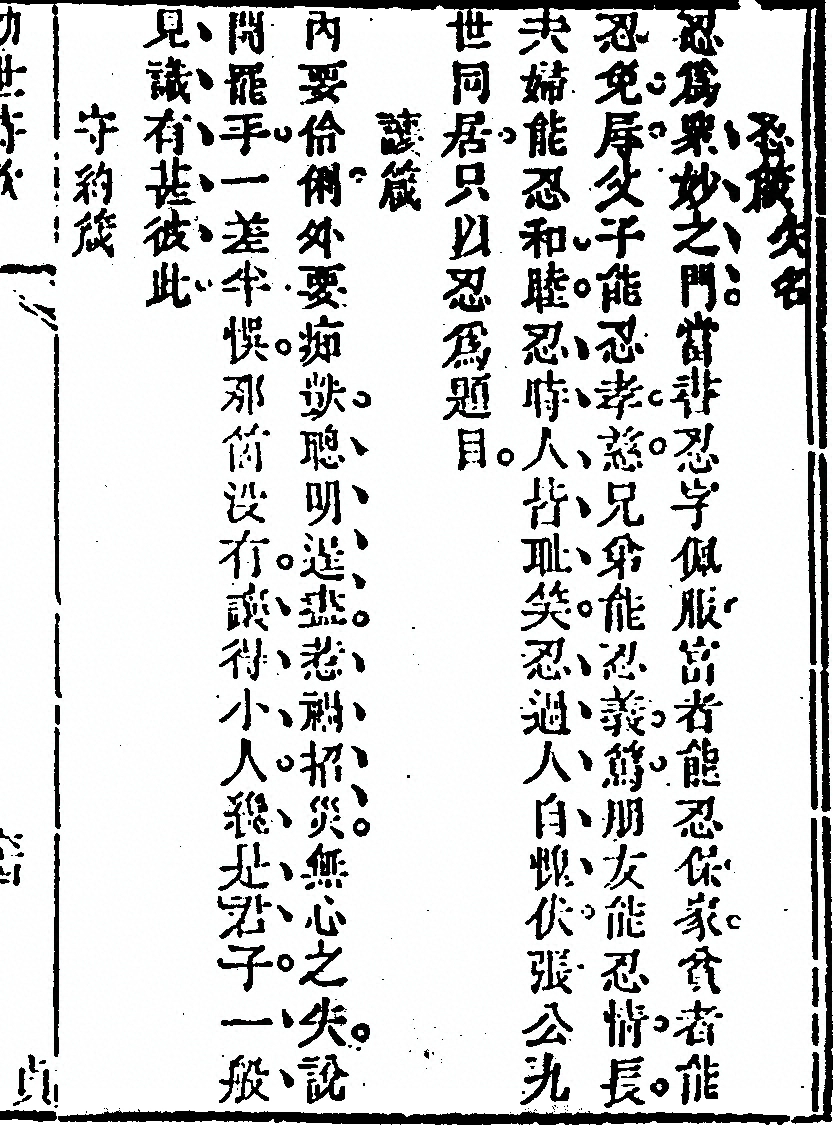 忍箴 失名
忍爲衆妙之門當書忍字佩服富者能忍保家貧者能
忍免辱父子能忍孝慈兄弟能忍義篤朋友能忍情長
夫婦能忍和睦忍時人皆耻笑忍過人自愧伏張公九
世同居只以忍爲題目
讓箴
內要伶俐外要痴獃聰明逞盡惹禍招災無心之失說
開罷手一差半悞那箇没有讓得小人纔是君子一般
見識有甚彼此
守約箴
貞